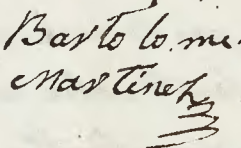 Barto lo. me.
Martinez